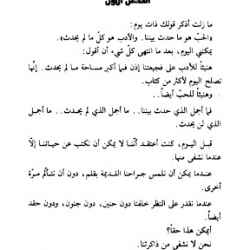 الفصل الأول
ما زلت أذكر قولك ذات يوم :
«الحب هو ما حدث بيننا. والأدب هو كل ما لم يحدث».
يمكنني اليوم، بعد ما انتهى كل شيء أن أقول :
هنيئاً للأدب على فجيعتنا إذن فما أكبر مساحة ما لم يحدث . إنها
تصلح اليوم لأكثر من كتاب .
وهنيئاً للحب أيضاً . .
فما أجمل الذي حدث بيننا . . ما أجمل الذي لم يحدث . . ما أجمل
الذي لن يحدث .
قبل اليوم، كنت أعتقد أننا لا يمكن أن نكتب عن حياتنا إلا
عندما نشفى منها.
عندما يمكن أن نلمس جراحنا القديمة بقلم، دون أن نتألم مرة
أخرى .
عندما نقدر على النظر خلفنا دون حنين، دون جنون، ودون حقد
أيضاً .
أيمكن هذا حقاً؟
نحن لا نشفى من ذاكرتنا .